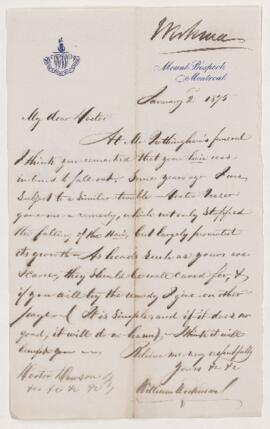 Workman
Mount Prospect,
Montreal
January 2 1875
My dear Doctor
At Mr funeral
I think you remarked that your hair was
inclined to fall out. Some years ago I was
subject to a similar trouble - Doctor
gave me a remedy, which not only stopped
the falling of the Hair, but largely promoted
its growth - As heads such as yours are
scarce, they should be well cared for, &
if you will try the remedy I give on other
paper (It is simple, and if it does no
good, it will do no harm) I think it will
you
Believe me very respectfully
Doctor Dawson
Yours &c &c
&c &c &c &c
William Workman